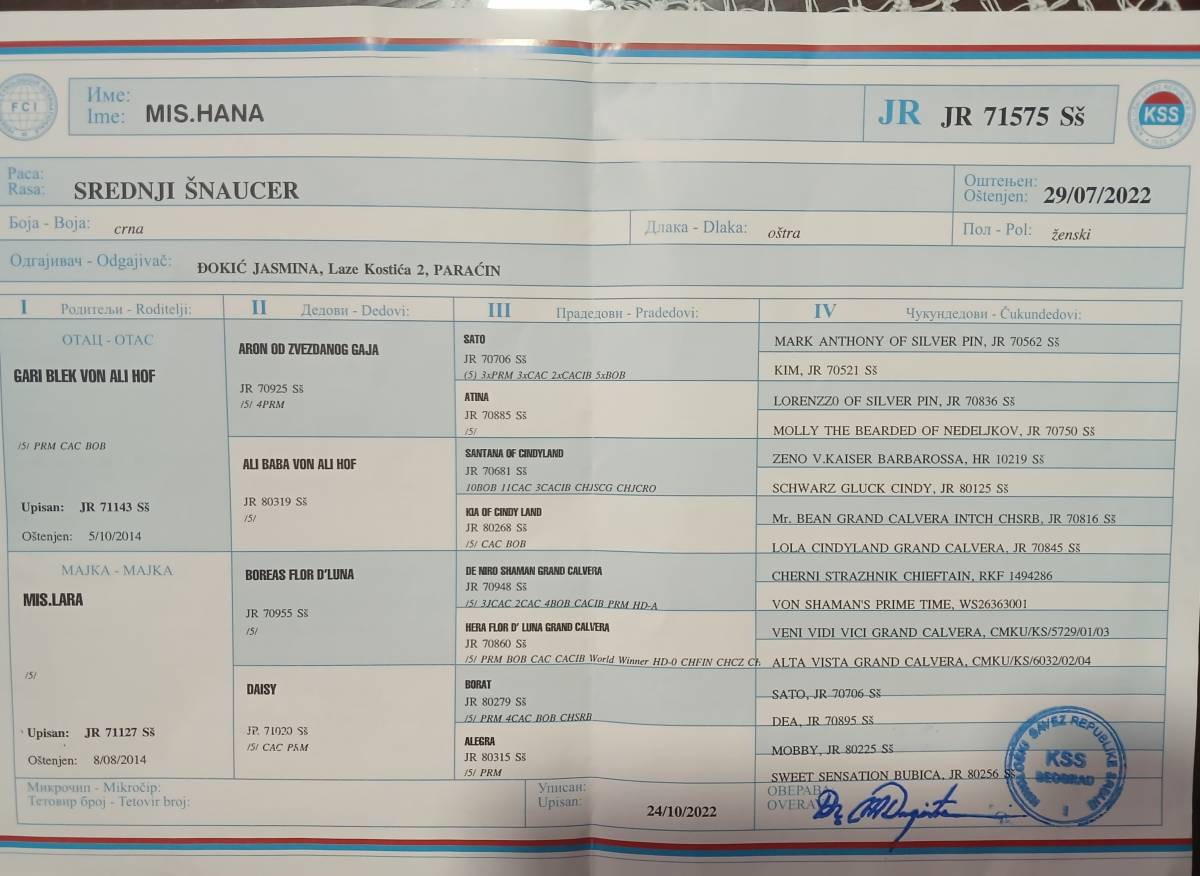 FCI
Име:
Ime: MIS.HANA
JR JR 71575 Sš
KSS
Раса:
Rasa: SREDNJI ŠNAUCER
Оштењен:
Oštenjen: 29/07/2022
Боја - Boja: crna
Длака - Dlaka: oštra
Пол - Pol: ženski
Одгајивач - Odgajivač: ĐOKIĆ JASMINA, Laze Kostića 2, PARAĆIN
I Родитељи - Roditelji:
II Дедови - Dedovi:
III Прадедови - Pradedovi:
IV Чукундедови - Čukundedovi:
ОТАЦ - OTAC
GARI BLEK VON ALI HOF
/5/ PRM CAC BOB
Upisan: JR 71143 Sš
Oštenjen: 5/10/2014
МАЈКА - MAJKA
MIS.LARA
/5/
Upisan: JR 71127 Sš
Oštenjen: 8/08/2014
ARON OD ZVEZDANOG GAJA
JR 70925 Sš
/5/ 4PRM
ALI BABA VON ALI HOF
JR 80319 Sš
/5/
BOREAS FLOR D'LUNA
JR 70955 Sš
/5/
DAISY
JR 71020 Sš
/5/ CAC PRM
SATO
JR 70706 Sš
(5) 3xPRM 3xCAC 2xCACIB 5xBOB
ATINA
JR 70885 Sš
/5/
SANTANA OF CINDYLAND
JR 70681 Sš
10BOB 11CAC 3CACIB CHJSCG CHJCRO
KIA OF CINDY LAND
JR 80268 Sš
/5/ CAC BOB
DE NIRO SHAMAN GRAND CALVERA
JR 70948 Sš
/5/ 3JCAC 2CAC 4BOB CACIB PRM HD-A
HERA FLOR D' LUNA GRAND CALVERA
JR 70860 Sš
/5/ PRM BOB CAC CACIB World Winner HD-0 CHFIN CHCZ
BORAT
JR 80279 Sš
/5/ PRM 4CAC BOB CHSRB
ALEGRA
JR 80315 Sš
/5/ PRM
MARK ANTHONY OF SILVER PIN, JR 70562 Sš
KIM, JR 70521 Sš
LORENZZ0 OF SILVER PIN, JR 70836 Sš
MOLLY THE BEARDED OF NEDELJKOV, JR 70750 Sš
ZENO V.KAISER BARBAROSSA, HR 10219 Sš
SCHWARZ GLUCK CINDY, JR 80125 Sš
Mr. BEAN GRAND CALVERA INTCH CHSRB, JR 70816 Sš
LOLA CINDYLAND GRAND CALVERA, JR 70845 Sš
CHERNI STRAZHNIK CHIEFTAIN, RKF 1494286
VON SHAMAN'S PRIME TIME, WS26363001
VENI VIDI VICI GRAND CALVERA, CMKU/KS/5729/01/03
ALTA VISTA GRAND CALVERA, CMKU/KS/6032/02/04
SATO, JR 70706 Sš
DEA, JR 70895 Sš
MOBBY, JR 80225 Sš
SWEET SENSATION BUBICA, JR 80256 Sš
Микрочип - Mikročip:
Тетовир број - Tetovir broj:
Уписан:
Upisan: 24/10/2022
ОВЕРАВА
OVERA
KINOLOŠKI SAVEZ REPUBLIKE SRBIJE
KSS
BEOGRAD